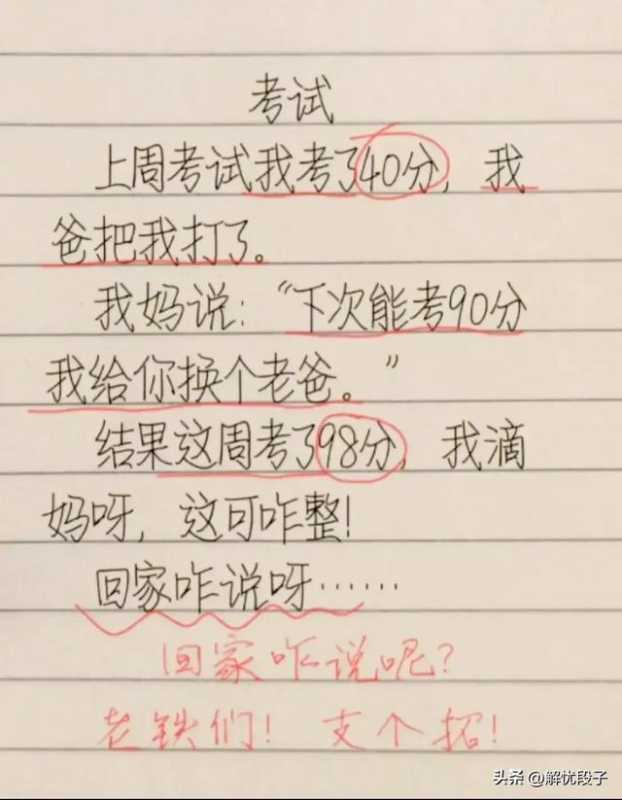 考试
上周考试我考了40分，我
爸把我打了。
我妈说：“下次能考90分
我给你换个老爸。”
结果这周考了98分，我滴
妈呀，这可咋整！
回家咋说呀……
回家咋说呢？
老铁们！支个招！
头条 @解忧段子